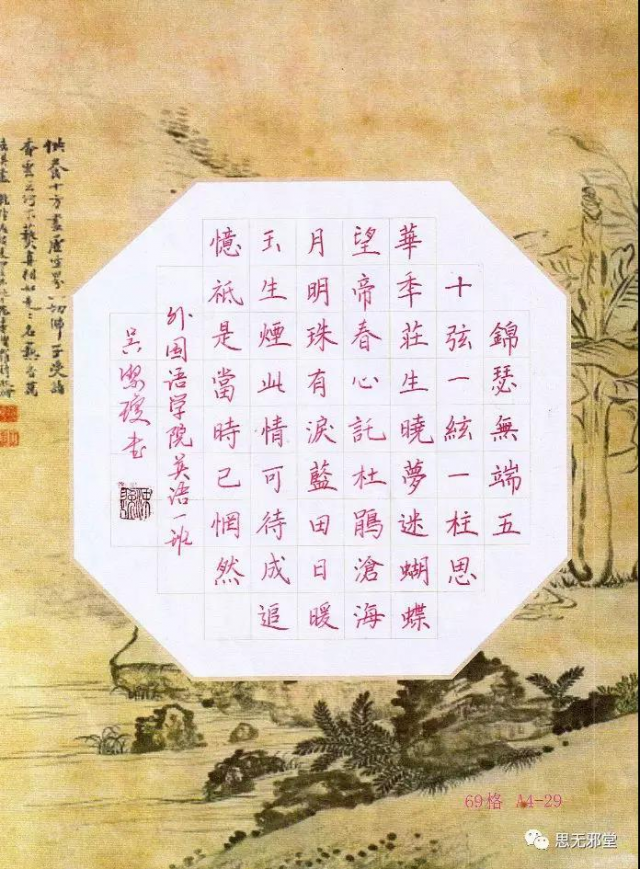 錦瑟無端五
十弦一絃一柱思
華秊莊生曉夢迷蝴蝶
望帝春心託杜鵑滄海
月明珠有淚藍田日暖
玉生煙此情可待成追
憶祇是當時已惘然
外国语学院英语一班
吴潔瓊书
供養十方盡虛空界一切佛
69格 A4-29
思无邪堂